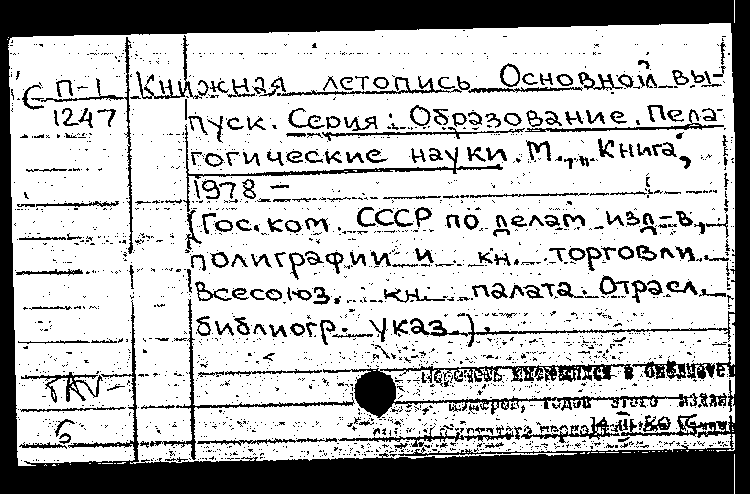 С П-1 Книжная летопись Основной вы-
1247 пуск. Серия: Образование. Педа-
гогические науки. М., „Книга",
1978 –
(Гос. ком. СССР по делам изд-в,
полиграфии и кн. торговли.
Всесоюз. кн. палата. Отрасл.
библиогр. указ.).
Перечень имеющихся в библиотеке
номеров, годов этого издания
6